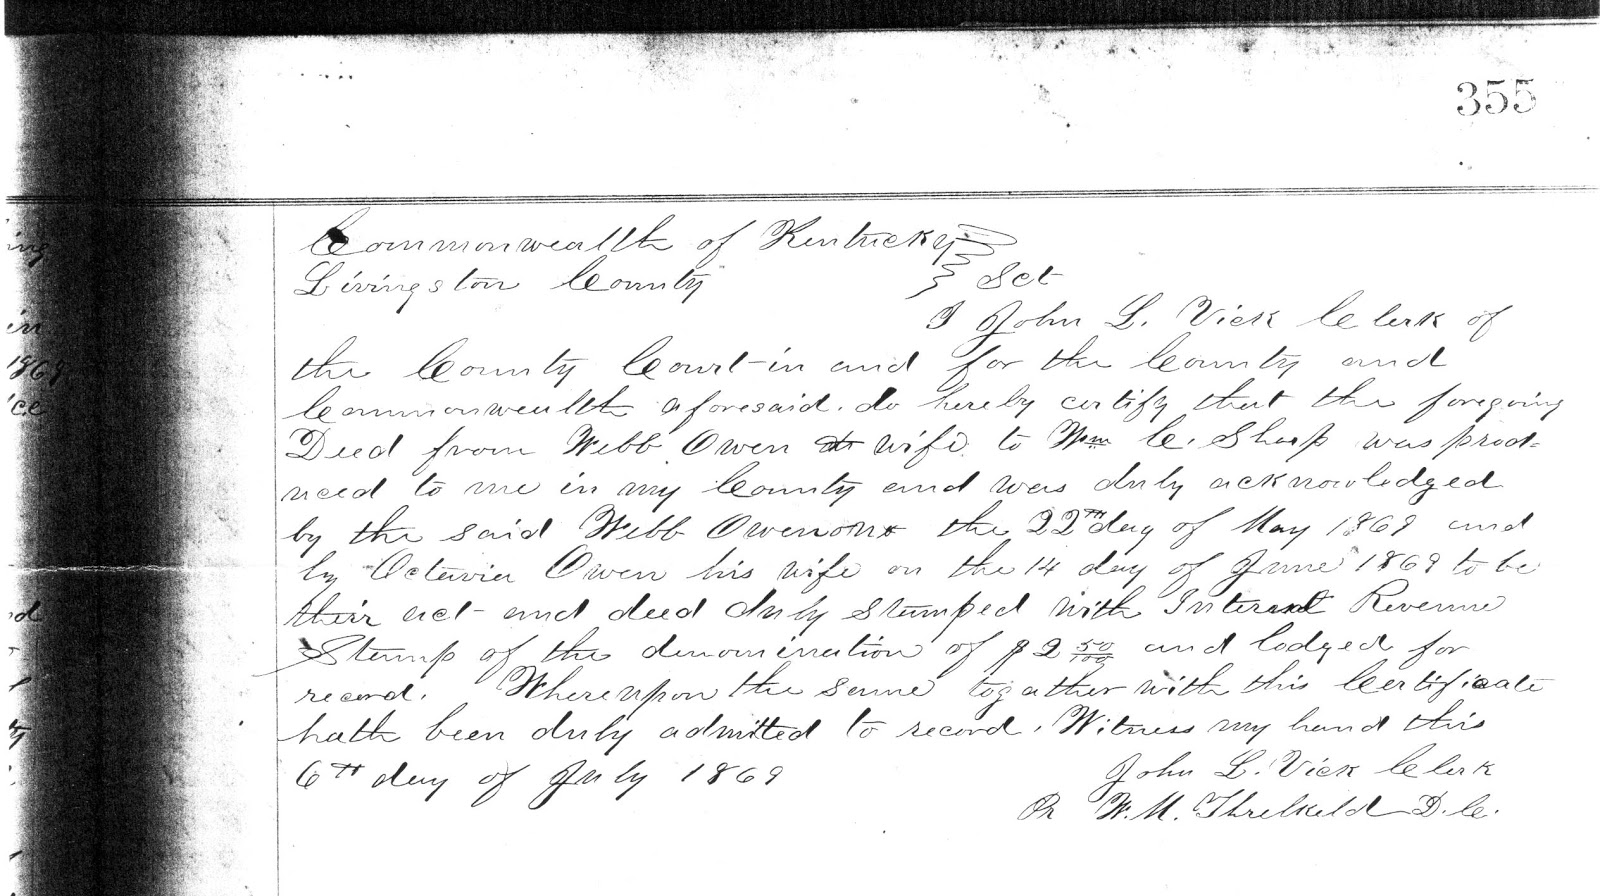 355
Commonwealth of Kentucky
Livingston County } Sct
I John L. Vick Clerk of
the County Court in and for the County and
Commonwealth aforesaid. do hereby certify that the foregoing
Deed from Webb Owen & wife to Wm C. Sharp was prod=
uced to me in my County and was duly acknowledged
by the said Webb Owen on the 22TH day of May 1869 and
by Octavia Owen his wife on the 14 day of June 1869 to be
their act and deed duly stamped with Internal Revenue
Stamp of the denomination of $2 50/100 and lodged for
record. Whereupon the same together with this Certificate
hath been duly admitted to record. Witness my hand this
6TH day of July 1869
John L. Vick Clerk
Pr W. M. Threlkeld D.C.
ing
in
1869
ice